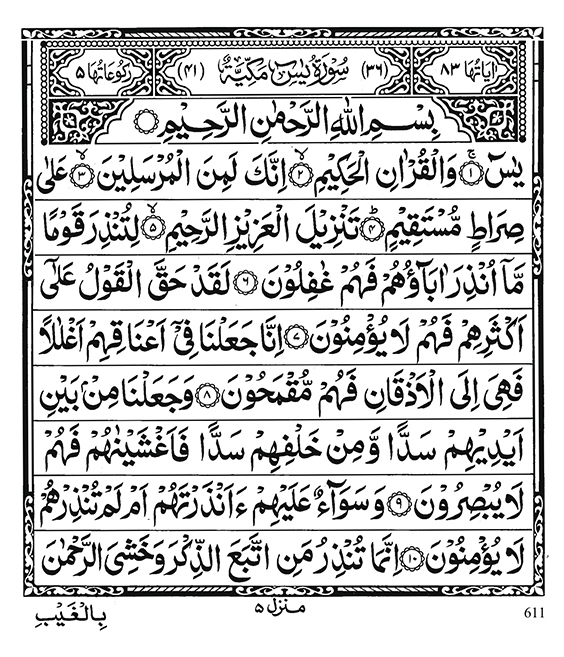 اٰیَاتُهَا ۸۳ (۳۶) سُوْرَةُ یٰسٓ مَکِّیَّةٌ (۴۱) رُکُوْعَاتُهَا ۵
بِسْمِ اللهِ الرَّحْمٰنِ الرَّحِیْمِ
یٰسٓ ۱ۚ وَالْقُرْاٰنِ الْحَکِیْمِ ۲ۙ اِنَّكَ لَمِنَ الْمُرْسَلِیْنَ ۳ۙ عَلٰی
صِرَاطٍ مُّسْتَقِیْمٍ ۴ؕ تَنْزِیْلَ الْعَزِیْزِ الرَّحِیْمِ ۵ۙ لِتُنْذِرَ قَوْمًا
مَّاۤ اُنْذِرَ اٰبَآؤُهُمْ فَهُمْ غٰفِلُوْنَ ۶ لَقَدْ حَقَّ الْقَوْلُ عَلٰۤی
اَکْثَرِهِمْ فَهُمْ لَا یُؤْمِنُوْنَ ۷ اِنَّا جَعَلْنَا فِیْۤ اَعْنَاقِهِمْ اَغْلٰلًا
فَهِیَ اِلَی الْاَذْقَانِ فَهُمْ مُّقْمَحُوْنَ ۸ وَجَعَلْنَا مِنْۢ بَیْنِ
اَیْدِیْهِمْ سَدًّا وَّمِنْ خَلْفِهِمْ سَدًّا فَاَغْشَیْنٰهُمْ فَهُمْ
لَا یُبْصِرُوْنَ ۹ وَسَوَآءٌ عَلَیْهِمْ ءَاَنْذَرْتَهُمْ اَمْ لَمْ تُنْذِرْهُمْ
لَا یُؤْمِنُوْنَ ۱۰ اِنَّمَا تُنْذِرُ مَنِ اتَّبَعَ الذِّکْرَ وَخَشِیَ الرَّحْمٰنَ
بِالْغَیْبِ منزل ۵ 611